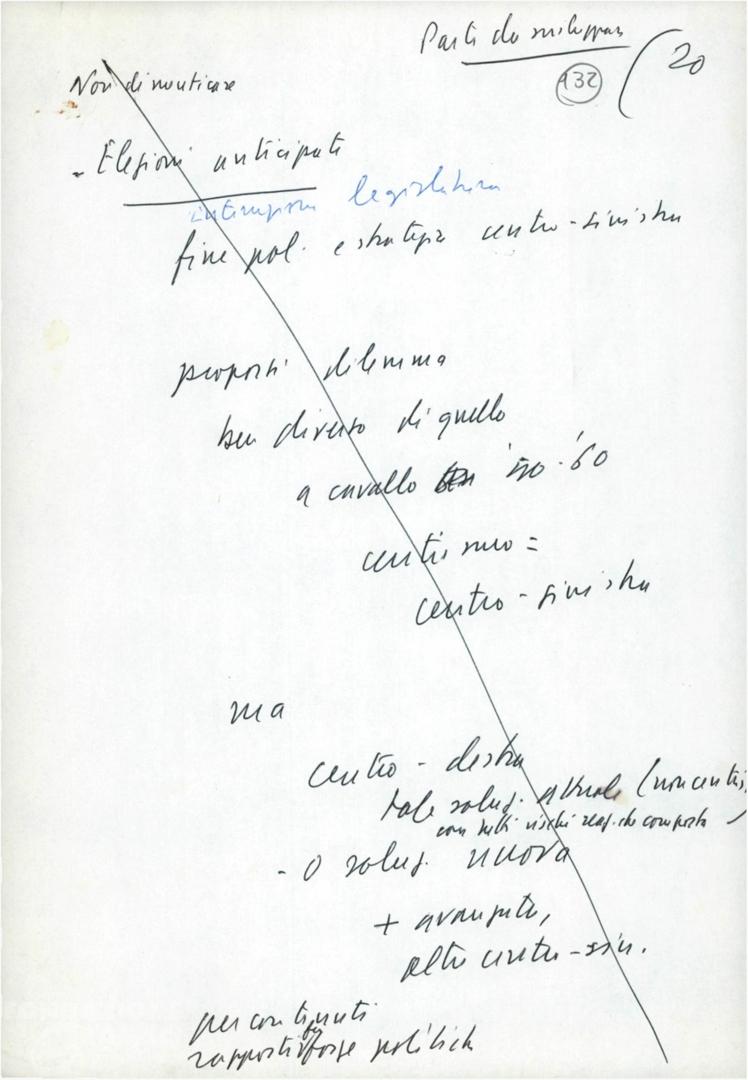 Parti da sviluppare
132
20
Non dimenticare
- Elezioni anticipate
interruzione legislatura
fine pol. e strategia centro-sinistra
proposti dilemma
ben diverso di quello
a cavallo '50-'60
centrismo =
centro-sinistra
ma
centro-destra
tale soluz. attuale (non centris
con tutti rischi reaz. che comporta)
- o soluz. nuova
+ avanzata,
oltre centro-sin.
per
rapporti forze politiche